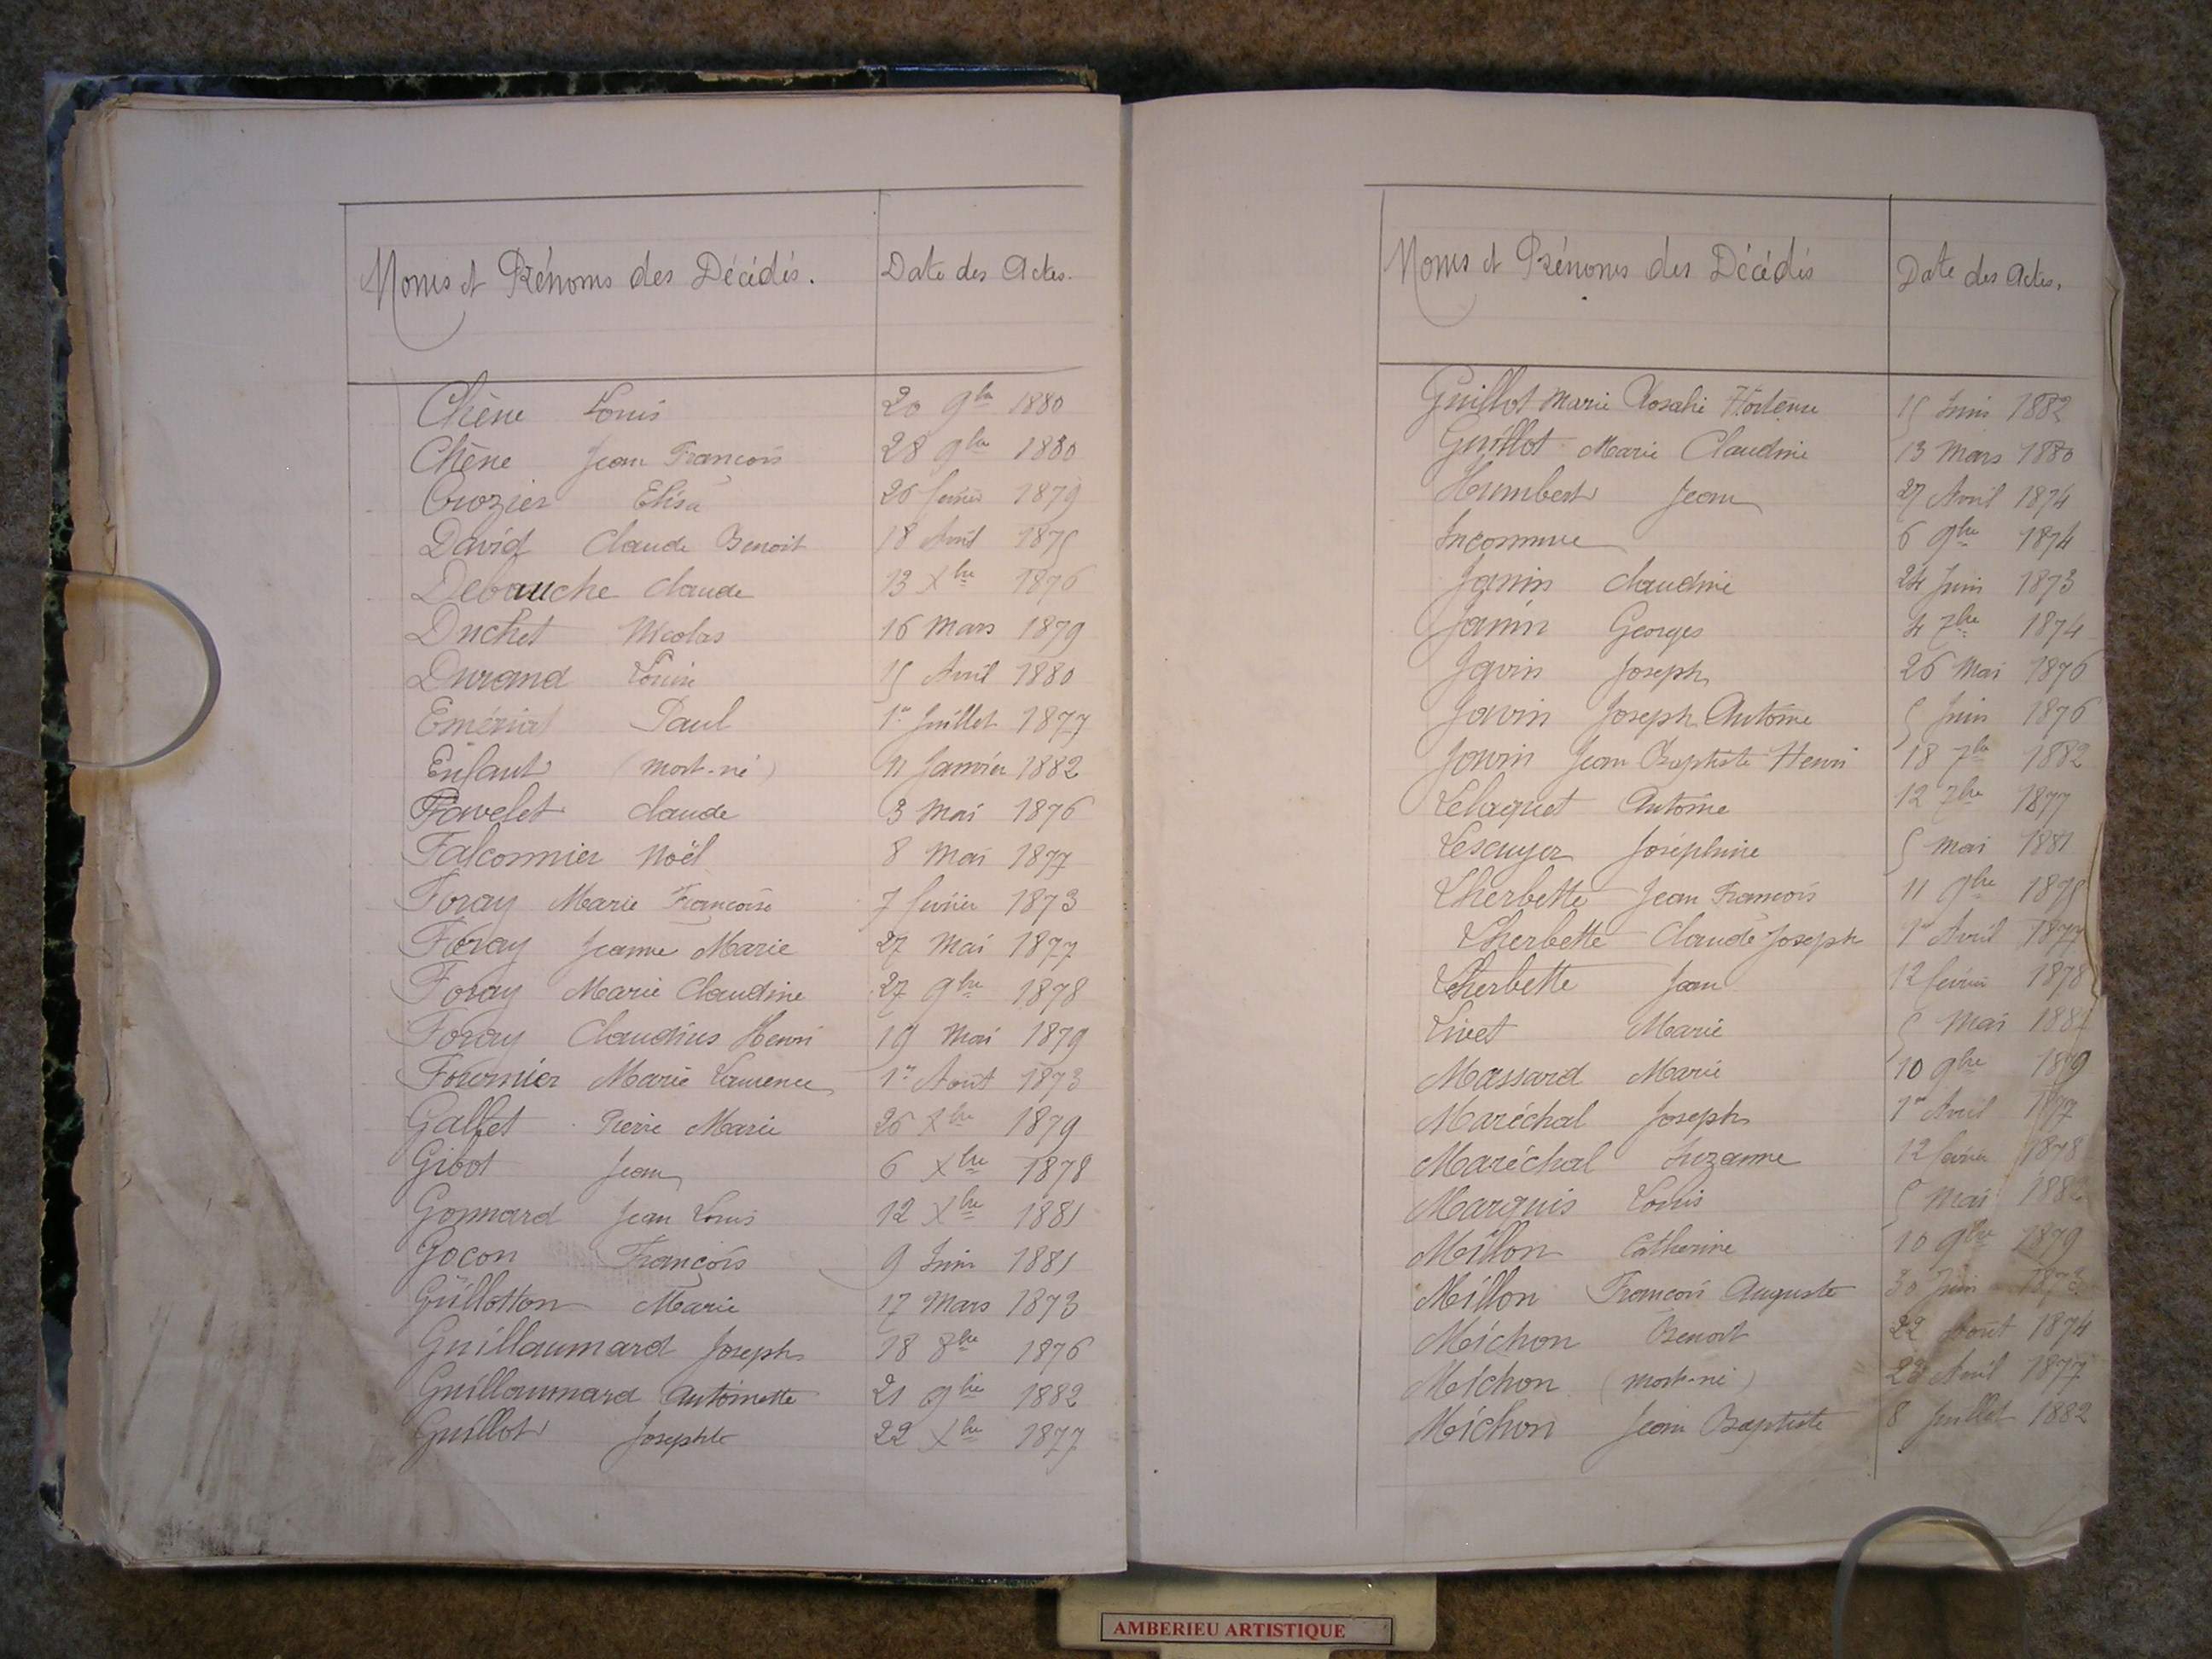 Noms et Prénoms des Décédés. Date des Actes.
Chêne Louis 20 9bre 1880
Chêne Jean François 28 9bre 1880
Crozier Elisa 26 février 1879
David Claude Benoit 18 Avril 1875
Debauche Claude 13 Xbre 1876
Duchet Nicolas 16 Mars 1879
Durand Louise 15 Avril 1880
Emériat Paul 1er Juillet 1877
Enfant (mort-né) 11 Janvier 1882
Favelet Claude 3 Mai 1876
Falconnier Noël 8 Mai 1877
Foray Marie Françoise 7 février 1873
Foray Jeanne Marie 27 Mai 1877
Foray Marie Claudine 27 9bre 1878
Foray Claudius Henri 19 Mai 1879
Fournier Marie Laurence 1er Août 1873
Gallet Pierre Marie 26 Xbre 1879
Gibot Jean 6 Xbre 1878
Gonnard Jean Louis 12 Xbre 1881
Gocon François 9 Juin 1881
Guillotton Marie 17 Mars 1873
Guillaumard Joseph 18 8bre 1876
Guillaumard Antoinette 21 9bre 1882
Guillot Josephte 22 Xbre 1877
Noms et Prénoms des Décédés Date des Actes.
Guillot Marie Rosalie Hortense 15 Juin 1882
Guillot Marie Claudine 13 Mars 1880
Humbert Jean 27 Avril 1874
Inconnue 6 9bre 1874
Janin Claudine 24 Juin 1873
Janin Georges 4 7bre 1874
Javin Joseph 26 Mai 1876
Javin Joseph Antoine 5 Juin 1876
Janin Jean Baptiste Henri 18 7bre 1882
Lelaquet Antoine 12 7bre 1877
Lescuyer Joséphine 5 Mai 1881
Lherbette Jean François 11 9bre 1875
Lherbette Claude Joseph 1er Avril 1877
Lherbette Jean 12 février 1878
Livet Marie 5 Mai 188
Massard Marie 10 9bre 1879
Maréchal Joseph 1er Avril 1877
Maréchal Suzanne 12 février 1878
Marquis Louis 5 Mai 1882
Millon Catherine 10 9bre 1879
Millon François Auguste 30 Juin 1873
Michon Benoit 22 Août 1874
Michon (mort-né) 28 Avril 1877
Michon Jean Baptiste 8 Juillet 1882
AMBERIEU ARTISTIQUE